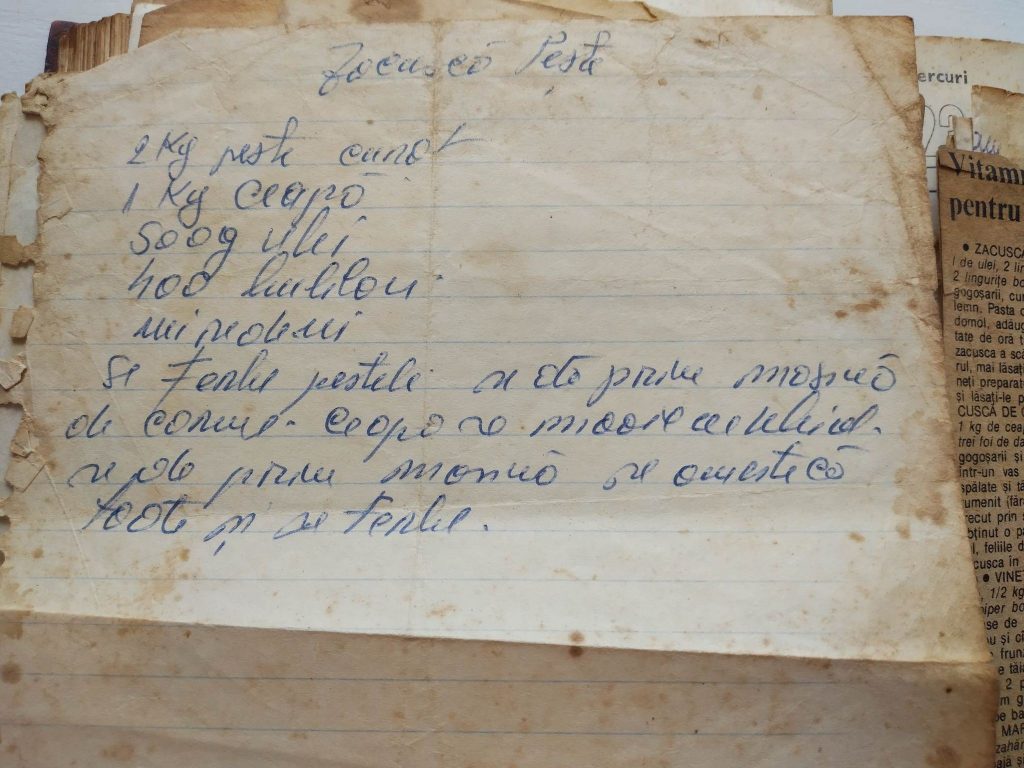 Zacuscă Pește
2 Kg pește curat
1 Kg ceapă
500g ulei
400 bulion
mirodenii
Se fierbe peștele se dă prin mașină
de carne. Ceapa se
se dă prin mașină se amestecă
toate și se fierbe.
ercuri
Vitam
pentru
• ZACUSC
l de ulei, 2 lin
2 lingurițe bo
gogoșarii, cur
lemn. Pasta o
domol, adăug
tate de oră ti
zacusca a scă
rul, mai lăsați
neți preparat
și lăsați-le p
CUSCĂ DE C
1 kg de ceap
trei foi de da
gogoșarii și
într-un vas
spălate și tă
rumenit (făr
recut prin
bținut o pa
l, feliile d
cusca în
• VINE
, 1/2 kg
piper bo
se de
u și ci
frunz
e tăia
2 p
m g
pe ba
MAR
zahăr